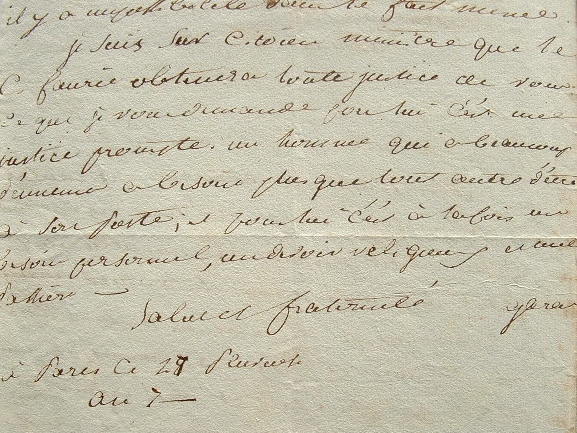 il y a impossibilité dans le fait même.
je suis sur Citoien ministre que le
C faurie obtiendra toute justice de vous
ce que je vous demande pour lui c'est une
justice prompte. un homme qui a beaucoup
d'ennemis a besoin plus que tout autre d'être
à son poste; et pour lui c'est à la fois un
besoin personnel, un devoir religieux et une
Salut et fraternité garat
à Paris Ce 27
an 7